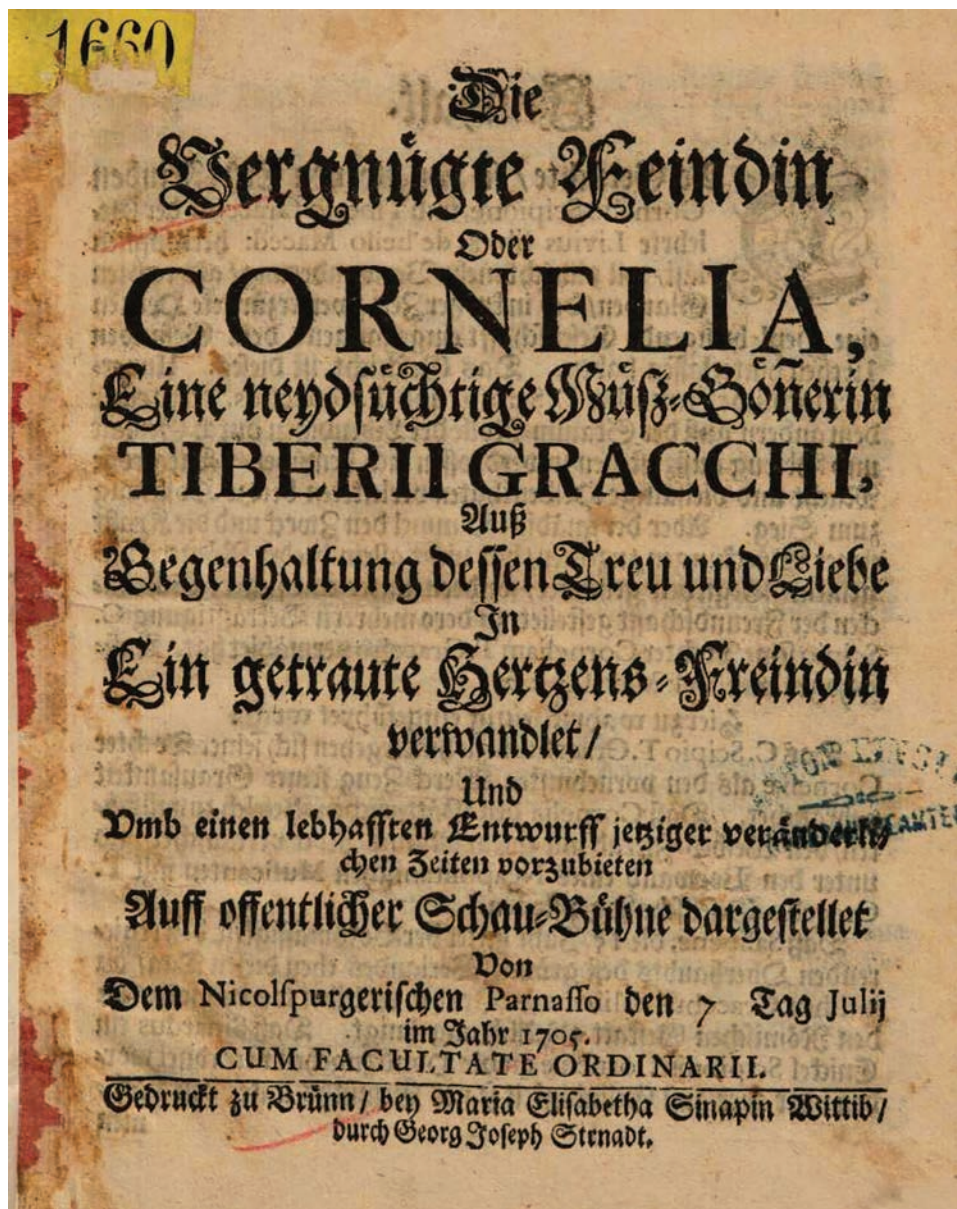 1660
Die
Vergnügte Feindin
Oder
CORNELIA,
Eine neydsüchtige Müß-Göñerin
TIBERII GRACCHI,
Auß
Gegenhaltung dessen Treu und Liebe
In
Ein getraute Hertzens-Freindin
verwandlet/
Und
Vmb einen lebhafften Entwurff jetziger veränderli-
chen Zeiten vorzubieten
Auff offentlicher Schau-Bühne dargestellet
Von
Dem Nicolspurgerischen Parnasso den 7 Tag Julij
im Jahr 1705.
CUM FACULTATE ORDINARII.
Gedruckt zu Brünn/ bey Maria Elisabetha Sinapin Wittib/
durch Georg Joseph Strnadt.